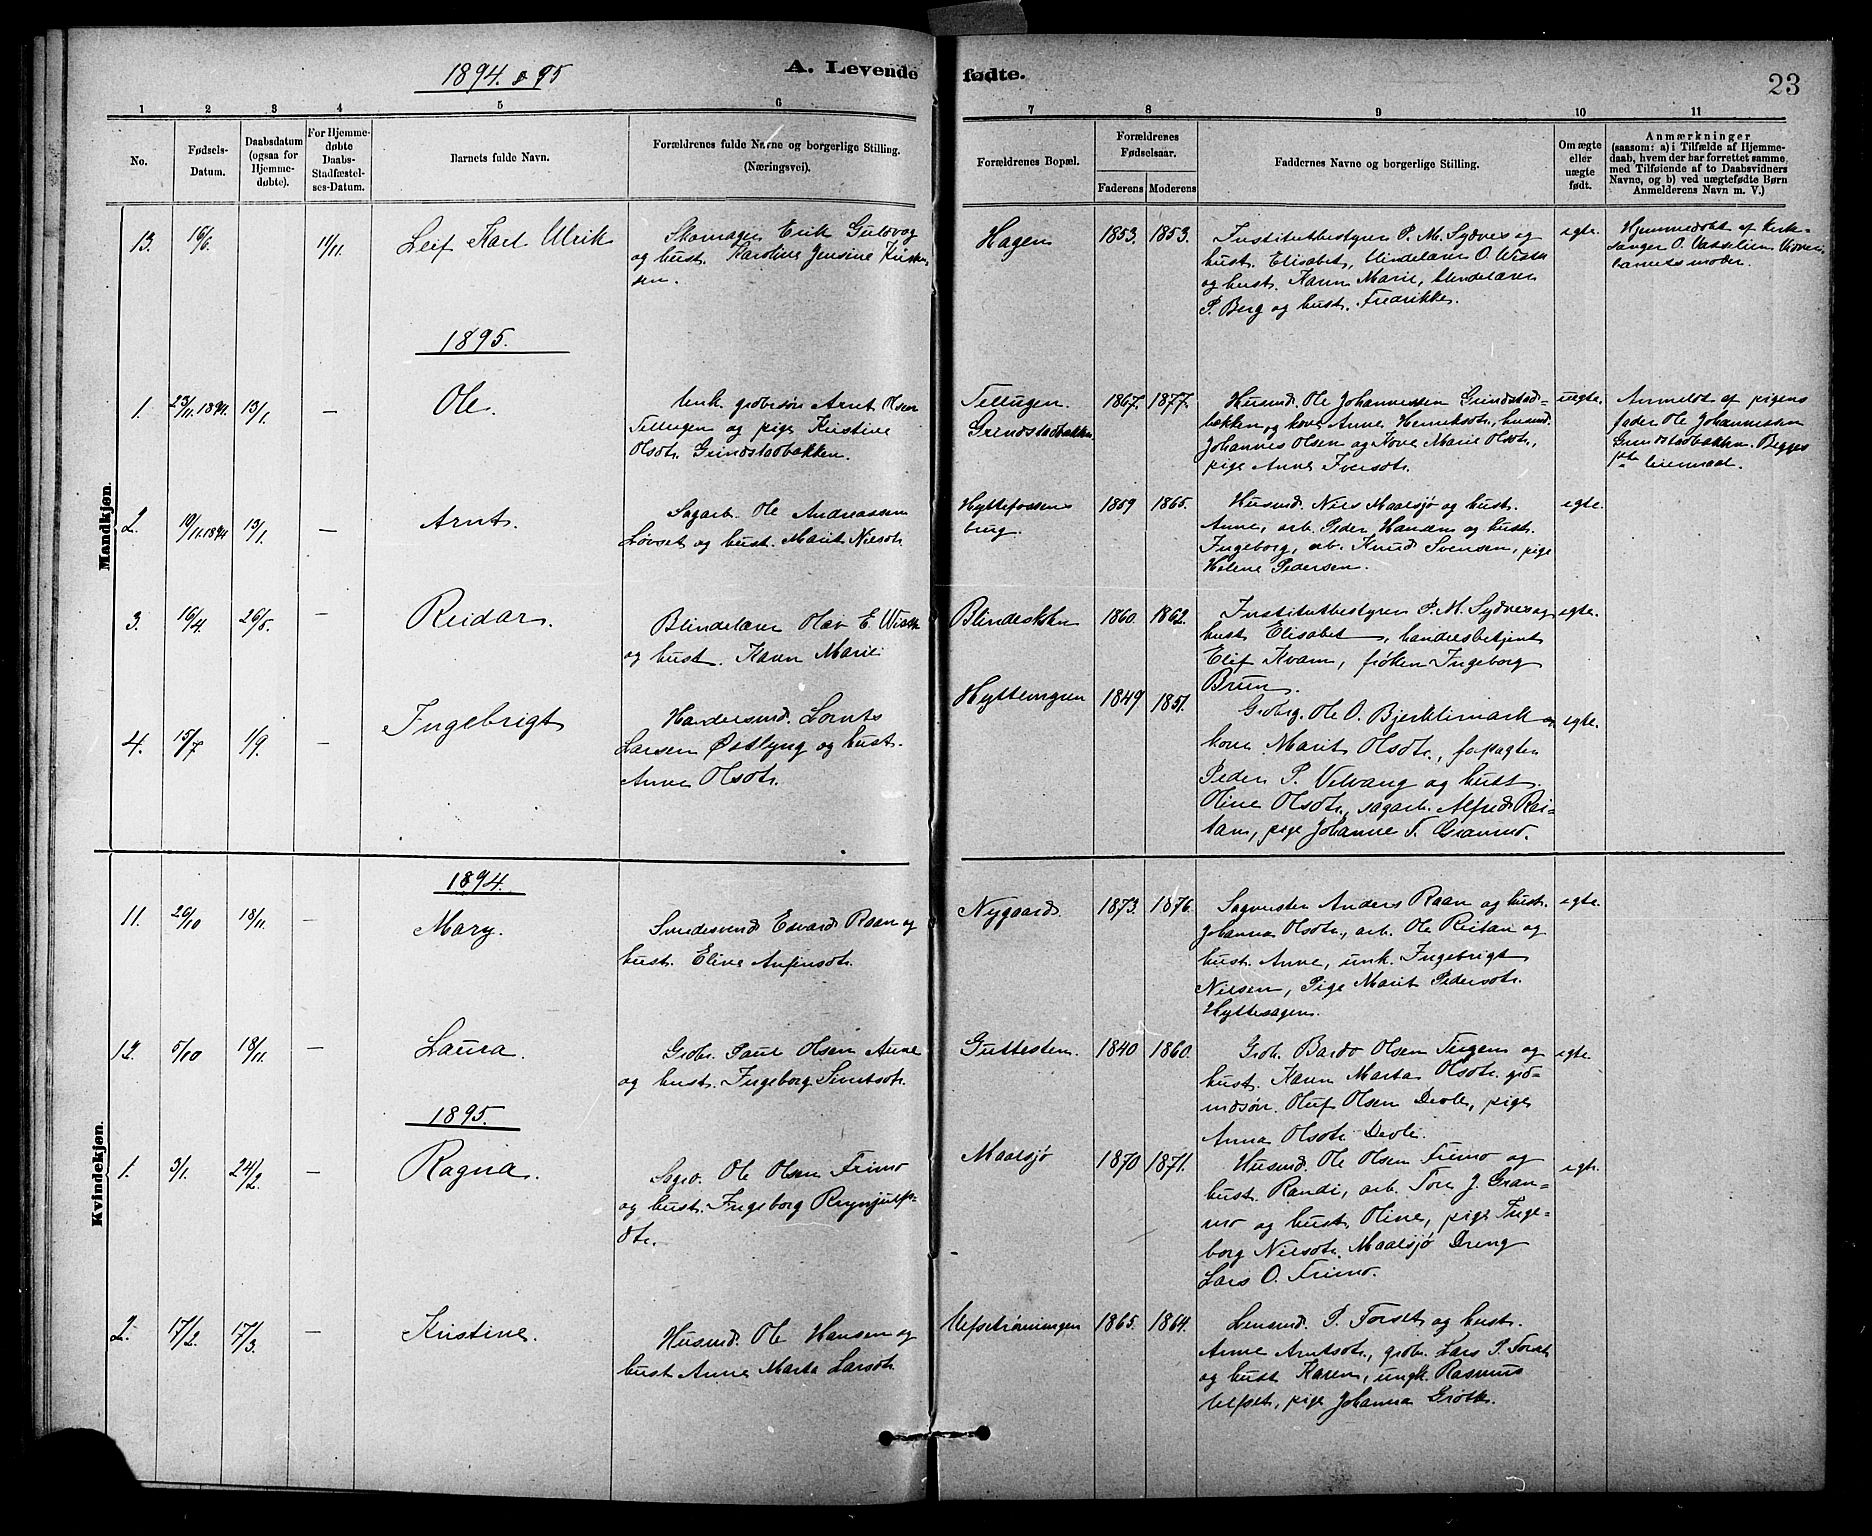 1894 & 95
A. Levende
fødte.
23
1 2 3 4 5 6 7 8 9 10 11
No.
Fødsels-Datum.
Daabsdatum (ogsaa for Hjemmedøbte).
For Hjemmedøbte Daabs-Stadfæstelses-Datum.
Barnets fulde Navn.
Forældrenes fulde Navne og borgerlige Stilling.
(Næringsvei).
Forældrenes Bopæl.
Forældrenes Fødselsaar.
Faderens Moderens
Faddernes Navne og borgerlige Stilling.
Om ægte eller uægte født.
Anmærkninger
(saasom: a) i Tilfælde af Hjemme-
daab, hvem der har forrettet samme,
med Tilføiende af to Daabsvidners
Navne, og b) ved uægtefødte Børn
Anmelderens Navn m. V.)
Mandkjøn.
13. 16/6. 11/11. Leif Karl Ulrik
Skomager Erik Gulsvog
og hust. Karoline Jensine Kristen-
sen.
Hagen 1853. 1853.
Institutbestyrer P. M. Sydnes og
hust. Elisabet, blindelærer O. Wisth
og hust. Karen Marie, blindelærer
P. Berg og hust. Fredrikke.
egte.
Hjemmedøbt af Kirke-
sanger O. Vasselien
barnets moder.
1895.
1. 23/11.1894. 13/1. — Ole.
Unk. grdbrsøn Arnt Olsen
Tellugen og pige Kristine
Olsdtr. Grindstadbakken.
Tellugen.
Grindstadbakken
1867. 1877.
Husmd. Ole Johannessen Grindstad-
bakken og kone Anne Henriksdtr., husmd.
Johannes Olsen og kone Marie Olsdtr.,
pige Anne Iversdtr.
uegte.
Anmeldt af pigens
fader Ole Johannessen
Grindstadbakken. Begges
1ste leiermaal.
2. 19/11.1894 13/1. — Arnt.
Sagarb. Ole Andreassen
Løvset og hust. Marit Nilsdtr.
Hyttefossens
brug.
1859 1865.
Husmd. Nils Maalsjø og hust.
Anne, arb. Peder Hanem og hust.
Ingeborg, arb. Knud Svensen, pige
Helene Pedersen.
egte.
3. 16/4. 26/5. — Reidar.
Blindelærer Olav E. Wisth
og hust. Karen Marie
Blindeskolen 1860. 1862.
Institutbestyrer P. M. Sydnes og
hust Elisabet, handelsbetjent
Elif Kvam, frøken Ingeborg
Brun.
egte.
4. 15/7 1/9. — Ingebrigt
Handelsmd. Lornts
Larsen Østlyng og hust.
Anne Olsdtr.
Hyttemyren 1849 1851.
Grdbrg. Ole O. Bjerklimark og
kone Marit Olsdtr., forpagter
Peder P. Velvang og hust.
Oline Olsdtr., sagarb. Alfred Rei-
tan, pige Johanne T. Granmo.
egte.
Kvindekjøn.
1894.
11. 26/10 18/11. — Mary.
Svendesvend Edvard Raan og
hust. Eline Anfinsdtr.
Nygaard. 1873. 1876.
Sagmester Anders Raan og hust.
Johanna Olsdtr., arb. Ole Reitan og
hust. Anne, unk. Ingebrigt
Nielsen, Pige Marit Pedersdtr.
Hyttesagen.
egte.
12. 5/10 18/11. — Laura.
Grdbr. Paul Olsen Aune
og hust. Ingeborg Sivertsdtr.
Guttesten. 1840 1860.
Grdb. Bardo Olsen Tugen og
hust. Karen Marta Olsdtr. grd-
mdsøn. Oluf Olsen Devle, pige
Anna Olsdtr. Devle.
egte.
1895.
1. 3/1. 24/2. — Ragna.
Sagv. Ole Olsen Frimo
og hust. Ingeborg Reynjulfs-
dtr.
Maalsjø 1870 1871.
Husmd. Ole Olsen Frimo og
hust. Randi, arb. Tore J. Gran-
mo og hust. Oline, pige Inge-
borg Nilsdtr. Maalsjø Dreng
Lars O. Frimo.
egte.
2. 17/2. 17/3. — Kristine.
Husmd. Ole Hansen og
hust Anne Marta Larsdtr.
Uksetrønningen 1865. 1864.
Lensmd. P. Forset og hust.
Anne Arntsdtr., grdbr. Lars P. Forset
og hust Karen, ungk. Rasmus
Ulfset, pige Johanna Grøtte.